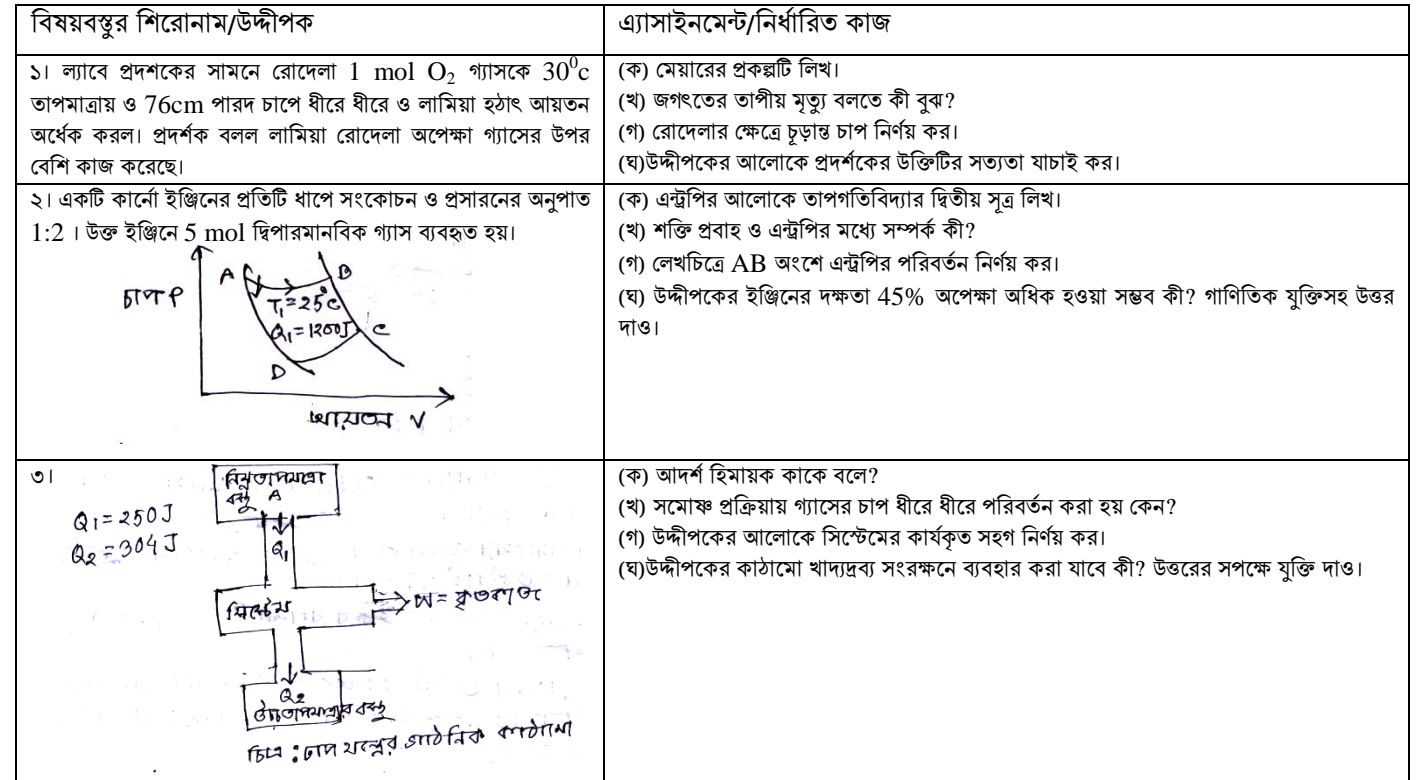 বিষয়বস্তুর শিরোনাম/উদ্দীপক
এ্যাসাইনমেন্ট/নির্ধারিত কাজ
১। ল্যাবে প্রদশকের সামনে রোদেলা 1 mol O₂ গ্যাসকে 30⁰c
তাপমাত্রায় ও 76cm পারদ চাপে ধীরে ধীরে ও লামিয়া হঠাৎ আয়তন
অর্ধেক করল। প্রদর্শক বলল লামিয়া রোদেলা অপেক্ষা গ্যাসের উপর
বেশি কাজ করেছে।
(ক) মেয়ারের প্রকল্পটি লিখ।
(খ) জগৎতের তাপীয় মৃত্যু বলতে কী বুঝ?
(গ) রোদেলার ক্ষেত্রে চূড়ান্ত চাপ নির্ণয় কর।
(ঘ)উদ্দীপকের আলোকে প্রদর্শকের উক্তিটির সত্যতা যাচাই কর।
২। একটি কার্নো ইঞ্জিনের প্রতিটি ধাপে সংকোচন ও প্রসারনের অনুপাত
1:2 । উক্ত ইঞ্জিনে 5 mol দ্বিপারমানবিক গ্যাস ব্যবহৃত হয়।
চাপ P
A
B
T₁=25°C
Q₁=1200J
C
D
আয়তন V
(ক) এন্ট্রপির আলোকে তাপগতিবিদ্যার দ্বিতীয় সূত্র লিখ।
(খ) শক্তি প্রবাহ ও এন্ট্রপির মধ্যে সম্পর্ক কী?
(গ) লেখচিত্রে AB অংশে এন্ট্রপির পরিবর্তন নির্ণয় কর।
(ঘ) উদ্দীপকের ইঞ্জিনের দক্ষতা 45% অপেক্ষা অধিক হওয়া সম্ভব কী? গাণিতিক যুক্তিসহ উত্তর
দাও।
৩।
নিম্নতাপমাত্রা
বস্তু A
Q₁=250J
Q₂=304J
Q₁
সিস্টেম
W= কৃতকাজ
Q₂
উচ্চতাপমাত্রার বস্তু
চিত্র : তাপ যন্ত্রের গাঠনিক কাঠামো
(ক) আদর্শ হিমায়ক কাকে বলে?
(খ) সমোষ্ণ প্রক্রিয়ায় গ্যাসের চাপ ধীরে ধীরে পরিবর্তন করা হয় কেন?
(গ) উদ্দীপকের আলোকে সিস্টেমের কার্যকৃত সহগ নির্ণয় কর।
(ঘ)উদ্দীপকের কাঠামো খাদ্যদ্রব্য সংরক্ষনে ব্যবহার করা যাবে কী? উত্তরের সপক্ষে যুক্তি দাও।